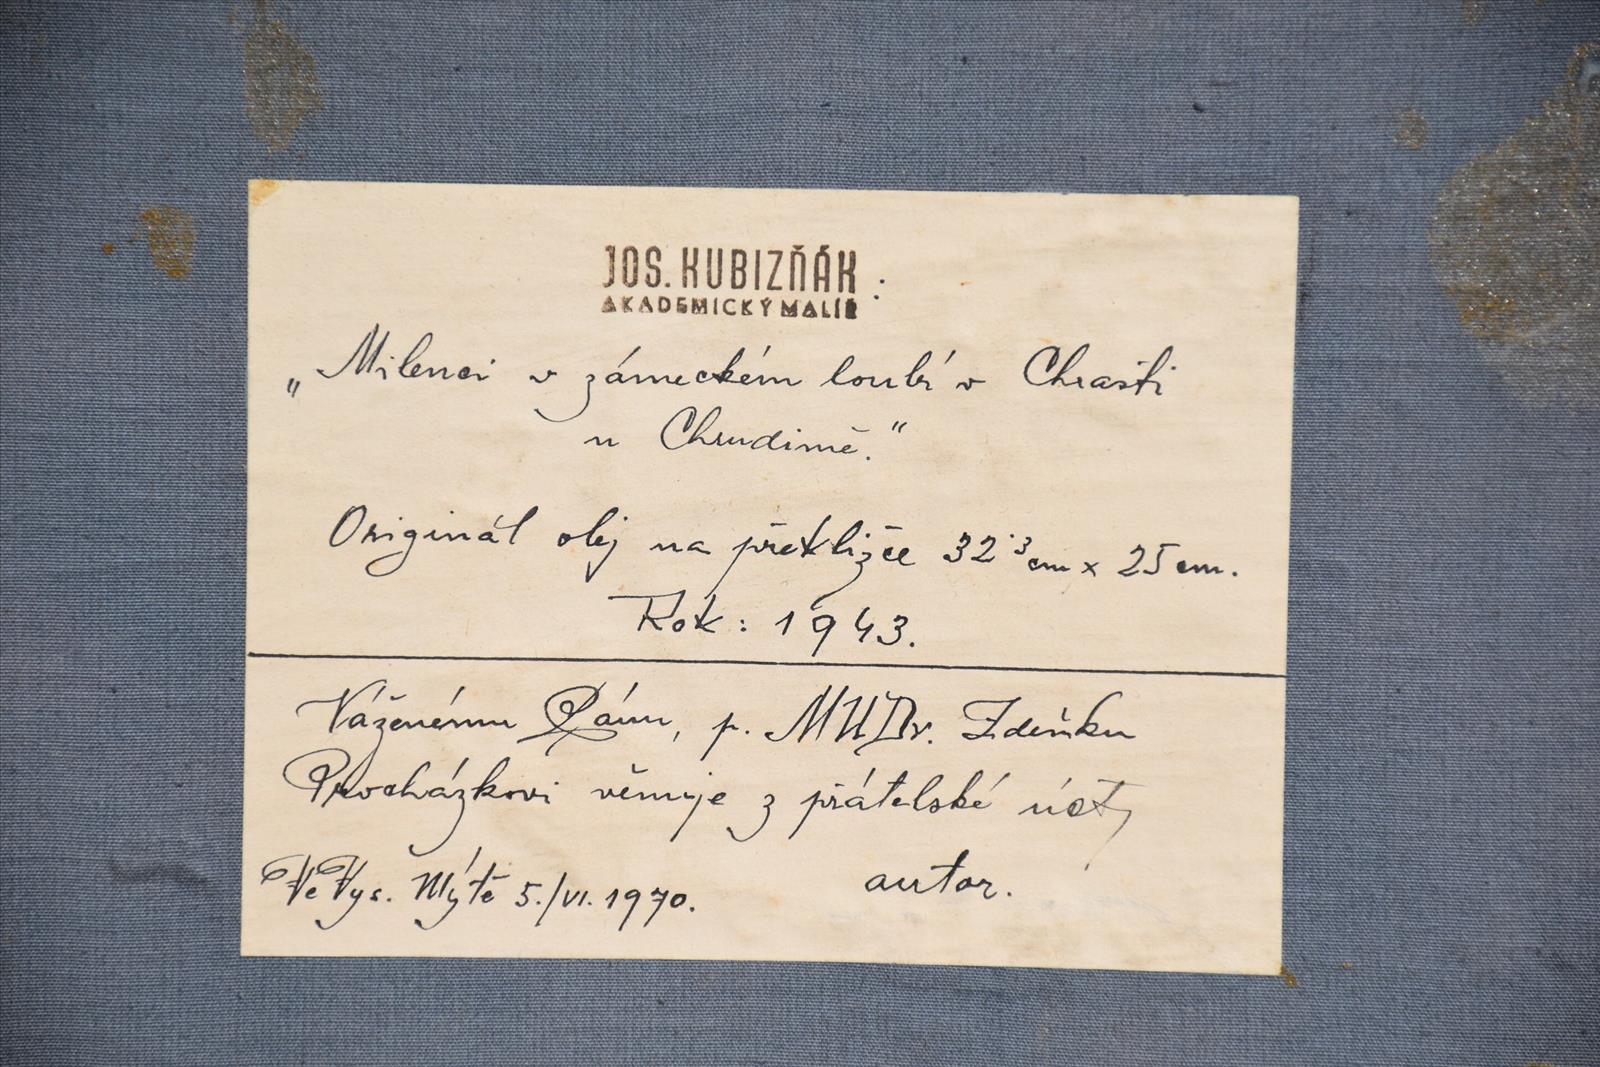 JOS. KUBIZŇÁK :
AKADEMICKÝ MALÍŘ
„Milenci v zámeckém loubí v Chrasti
u Chrudimě."
Originál olej na překližce 32·3 cm x 25 cm.
Rok: 1943.
Váženému Pánu, p. MUDr. Zdeňku
Procházkovi věnuje z přátelské úcty
Ve Vys. Mýtě 5./VI. 1970.
autor.